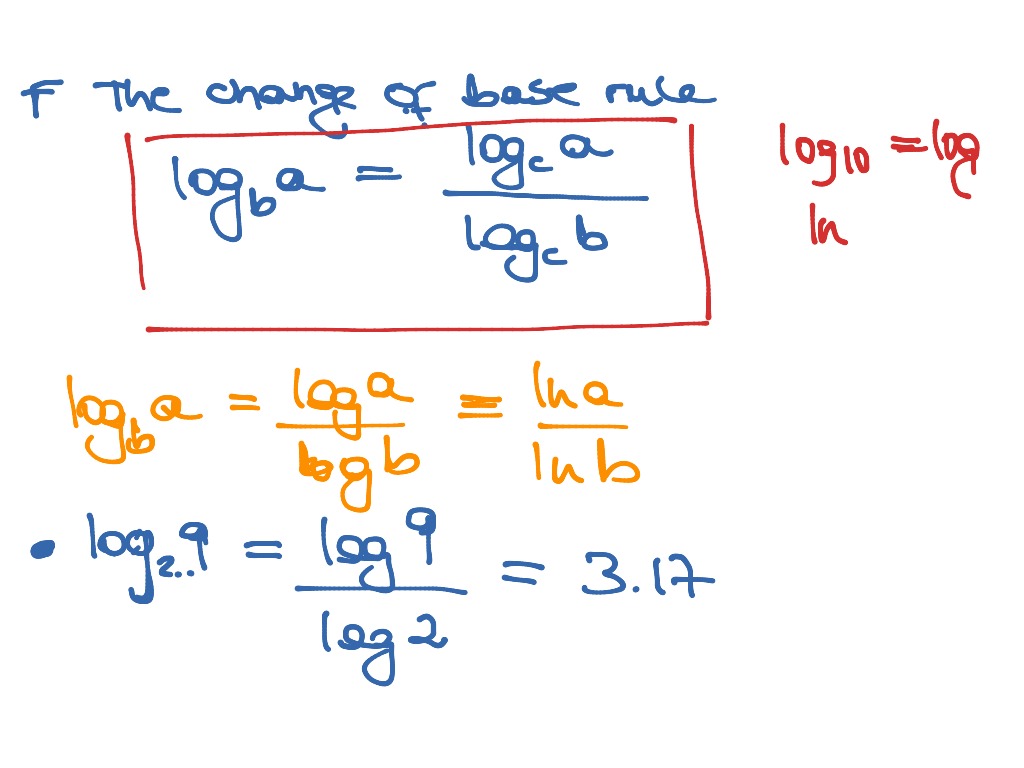 F The change of base rule
log_b a = log_c a / log_c b
log_10 = log
ln
log_b a = log a / log b = ln a / ln b
• log_2 9 = log 9 / log 2 = 3.17